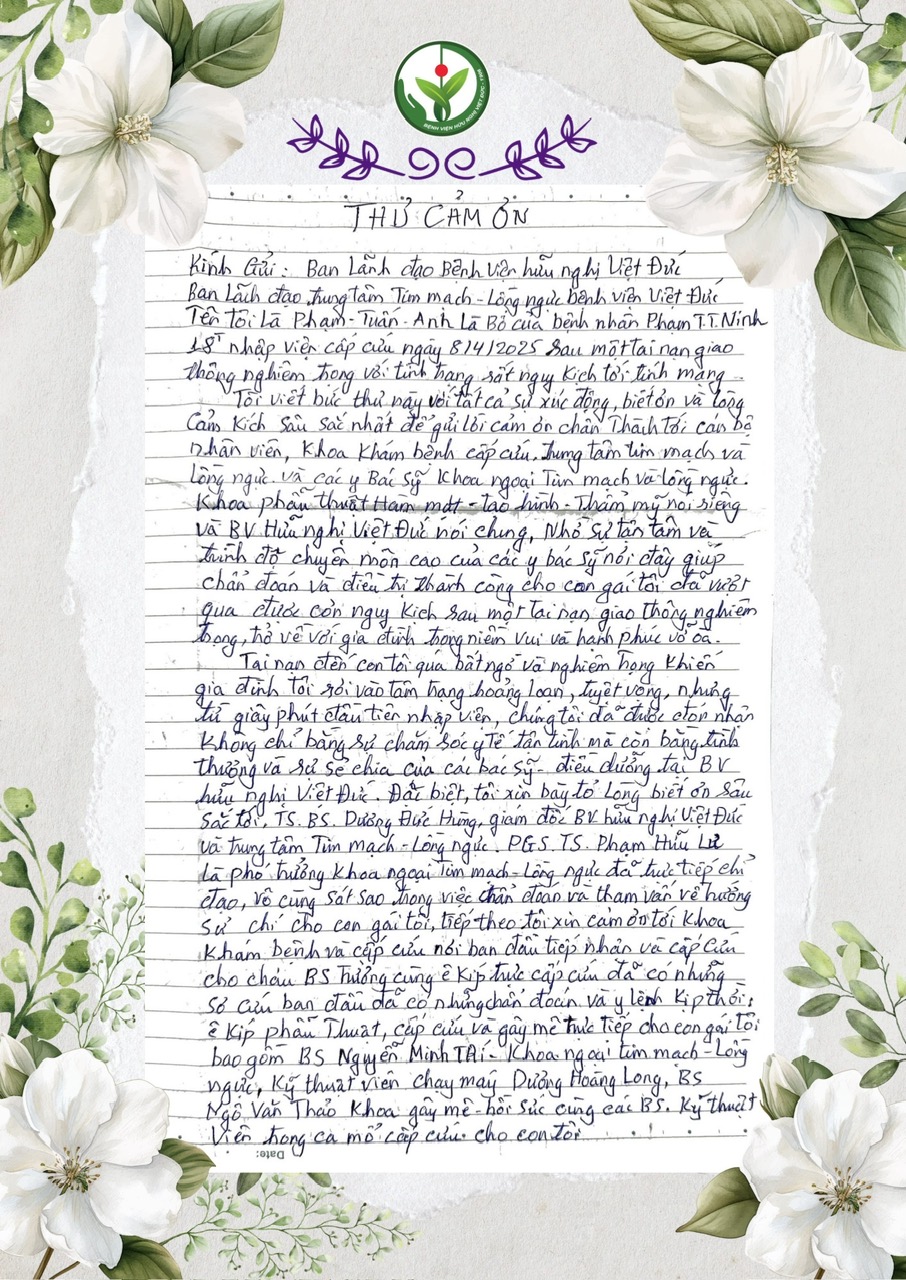 BỆNH VIỆN HỮU NGHỊ VIỆT ĐỨC - TIM
THƯ CẢM ƠN
Kính Gửi: Ban Lãnh đạo Bệnh viện hữu nghị Việt Đức
Ban Lãnh đạo trung tâm Tim mạch - Lồng ngực bệnh viện Việt Đức
Tên tôi Là Phạm - Tuấn - Anh Là Bố của bệnh nhân Phạm T.T. Ninh
18T nhập viện cấp cứu ngày 8/4/2025 sau một tai nạn giao
thông nghiêm trọng với tình trạng rất nguy kịch tới tính mạng.
Tôi viết bức thư này với tất cả sự xúc động, biết ơn và lòng
Cảm Kích sâu sắc nhất để gửi lời cảm ơn chân Thành tới cán bộ
nhân viên, Khoa Khám bệnh cấp cứu, trung tâm tim mạch và
Lồng ngực. và các y Bác Sỹ Khoa ngoại Tim mạch và lồng ngực.
Khoa phẫu thuật Hàm mặt - tạo hình - Thẩm mỹ nói riêng
và BV Hữu nghị Việt Đức nói chung, Nhờ sự tận tâm và
trình độ chuyên môn cao của các y bác sỹ nơi đây giúp
chẩn đoán và điều trị thành công cho con gái tôi đã vượt
qua được cơn nguy kịch sau một tai nạn giao thông nghiêm
trọng, trở về với gia đình trong niềm vui và hạnh phúc vỡ òa.
Tai nạn đến con tôi quá bất ngờ và nghiêm trọng Khiến
gia đình tôi rơi vào tâm trạng hoảng loạn, tuyệt vọng, nhưng
từ giây phút đầu tiên nhập viện, chúng tôi đã được đón nhận
Không chỉ bằng sự chăm sóc y tế tận tình mà còn bằng tình
thương và sự sẻ chia của các bác sỹ - điều dưỡng tại BV
hữu nghị Việt Đức. Đặc biệt, tôi xin bày tỏ Lòng biết ơn sâu
sắc tới, TS. BS. Dương Đức Hùng, giám đốc BV hữu nghị Việt Đức
và trung tâm Tim mạch - Lồng ngực. PGS. TS. Phạm Hữu Lư
Là phó trưởng Khoa ngoại Tim mạch - Lồng ngực đã trực tiếp chỉ
đạo, vô cùng sát sao trong việc chẩn đoán và tham vấn về hướng
sử chí cho con gái tôi, tiếp theo tôi xin cảm ơn tới Khoa
Khám bệnh và cấp cứu nơi ban đầu tiếp nhận và cấp cứu
cho cháu BS Trường cùng ê Kíp trực cấp cứu đã có những
sơ cứu ban đầu đã có những chẩn đoán và y lệnh Kịp thời,
ê Kíp phẫu Thuật, cấp cứu và gây mê trực tiếp cho con gái tôi
bao gồm BS Nguyễn Minh TÀi - Khoa ngoại tim mạch - Lồng
ngực, Kỹ thuật viên chạy máy Dương Hoàng Long, BS
Ngô Văn Thảo Khoa gây mê - hồi sức cùng các BS. Kỹ thuật
Viên trong ca mổ cấp cứu. cho con tôi
Date: